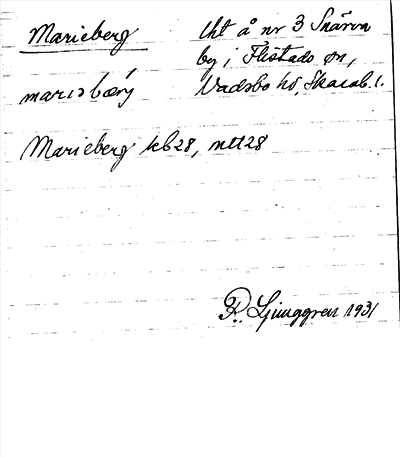 Marieberg
lht å nr 3 Snärva
by i Flistads sn,
Vadsbo hd, Skarab. l.
Marieberg kb28, mtl28
R. Ljunggren 1931